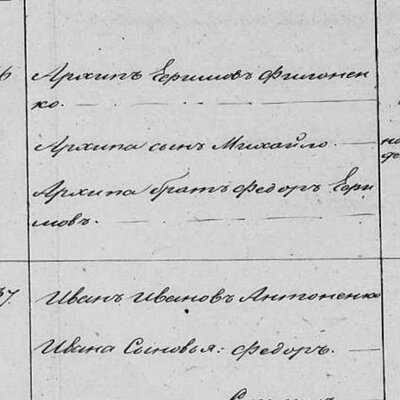 6 Архипъ Ефимовъ Филонен
ко.
Архипа сынъ Михайло.
Архипа братъ Федоръ Ефи
мовъ.
37 Иванъ Ивановъ Антоненко
Ивана Сыновья: Федоръ.